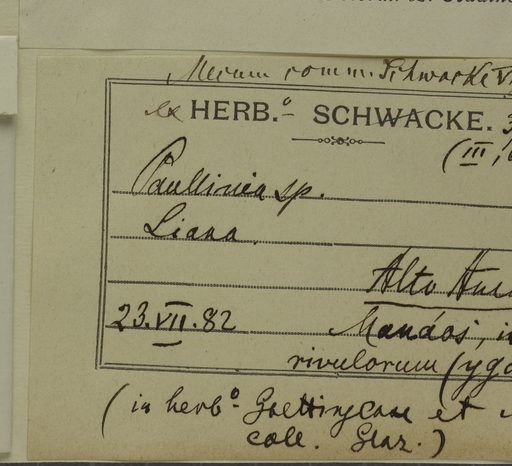 Mecum comm. Schwacke V
ex HERB.º SCHWACKE. 3
(III,
Paullinia sp.
Liana.
Alto
23.VII.82 Manáos, i
rivulorum (yga
(in herb.º Goettingense et
coll. Glaz.)